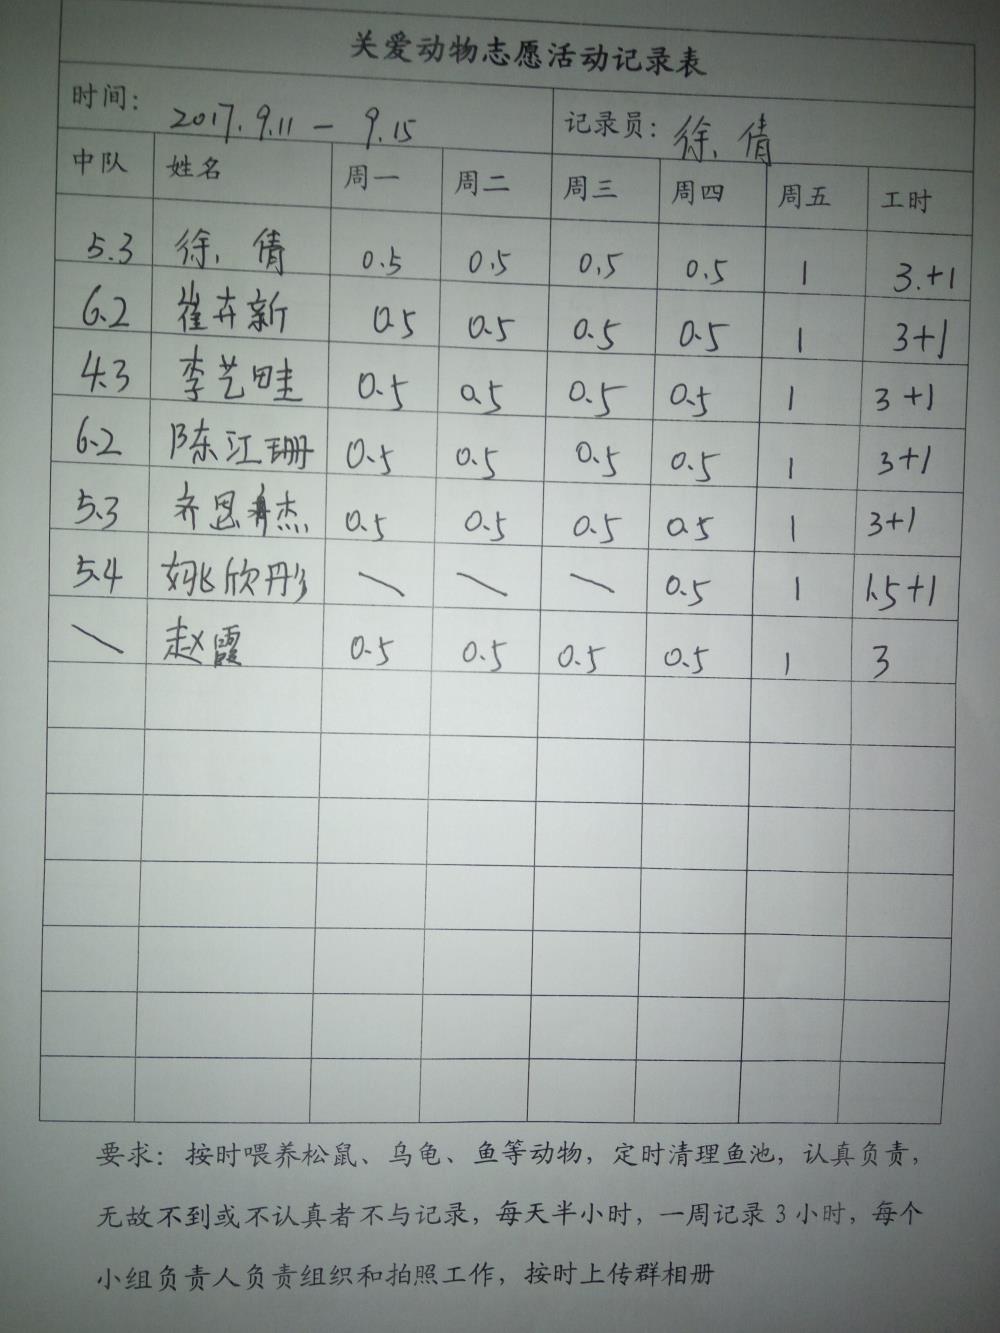 关爱动物志愿活动记录表
时间： 2017.9.11 — 9.15 记录员： 徐倩
中队 姓名 周一 周二 周三 周四 周五 工时
5.3 徐倩 0.5 0.5 0.5 0.5 1 3.+1
6.2 崔卉新 0.5 0.5 0.5 0.5 1 3+1
4.3 李艺畦 0.5 0.5 0.5 0.5 1 3+1
6.2 陈江珊 0.5 0.5 0.5 0.5 1 3+1
5.3 齐恩杰 0.5 0.5 0.5 0.5 1 3+1
5.4 姚欣彤 \ \ \ 0.5 1 1.5+1
\ 赵霞 0.5 0.5 0.5 0.5 1 3
要求：按时喂养松鼠、乌龟、鱼等动物，定时清理鱼池，认真负责，
无故不到或不认真者不与记录，每天半小时，一周记录3小时，每个
小组负责人负责组织和拍照工作，按时上传群相册